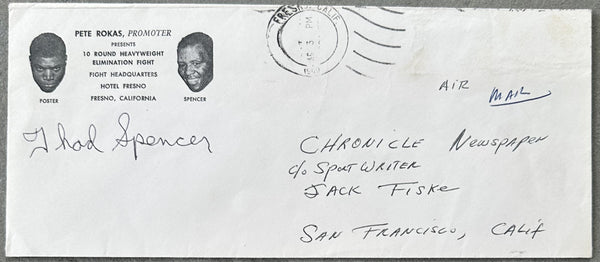 PETE ROKAS, PROMOTER
PRESENTS
10 ROUND HEAVYWEIGHT
ELIMINATION FIGHT
FIGHT HEADQUARTERS
HOTEL FRESNO
FRESNO, CALIFORNIA
POSTER
SPENCER
FRESNO, CALIF
PM
Thad Spencer
AIR MAIL
CHRONICLE Newspaper
c/o SPORT WRITER
JACK FISKE
SAN FRANCISCO, CALIF